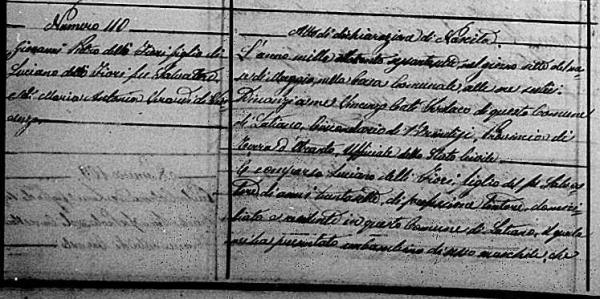 Numero 110
Giovanni Pietro delli Fiori figlio di
Luciano delli Fiori fu Salvatore
e di Maria Antonia
Atto di dichiarazione di Nascita.
L'anno mille ottocento sessantasette, nel giorno sette del me
se di Maggio, nella Casa Comunale, alle ore
Dinanzi a me Vincenzo Sindaco di questo Comune
di Latiano, Circondario di Brindisi, Provincia di
Terra d'Otranto, Uffiziale dello Stato Civile.
È comparso Luciano delli Fiori, figlio del fu Salva
tore di anni trentotto, di professione domici
liato e residente in questo Comune di Latiano, il quale
mi ha presentato un bambino di sesso maschile, che